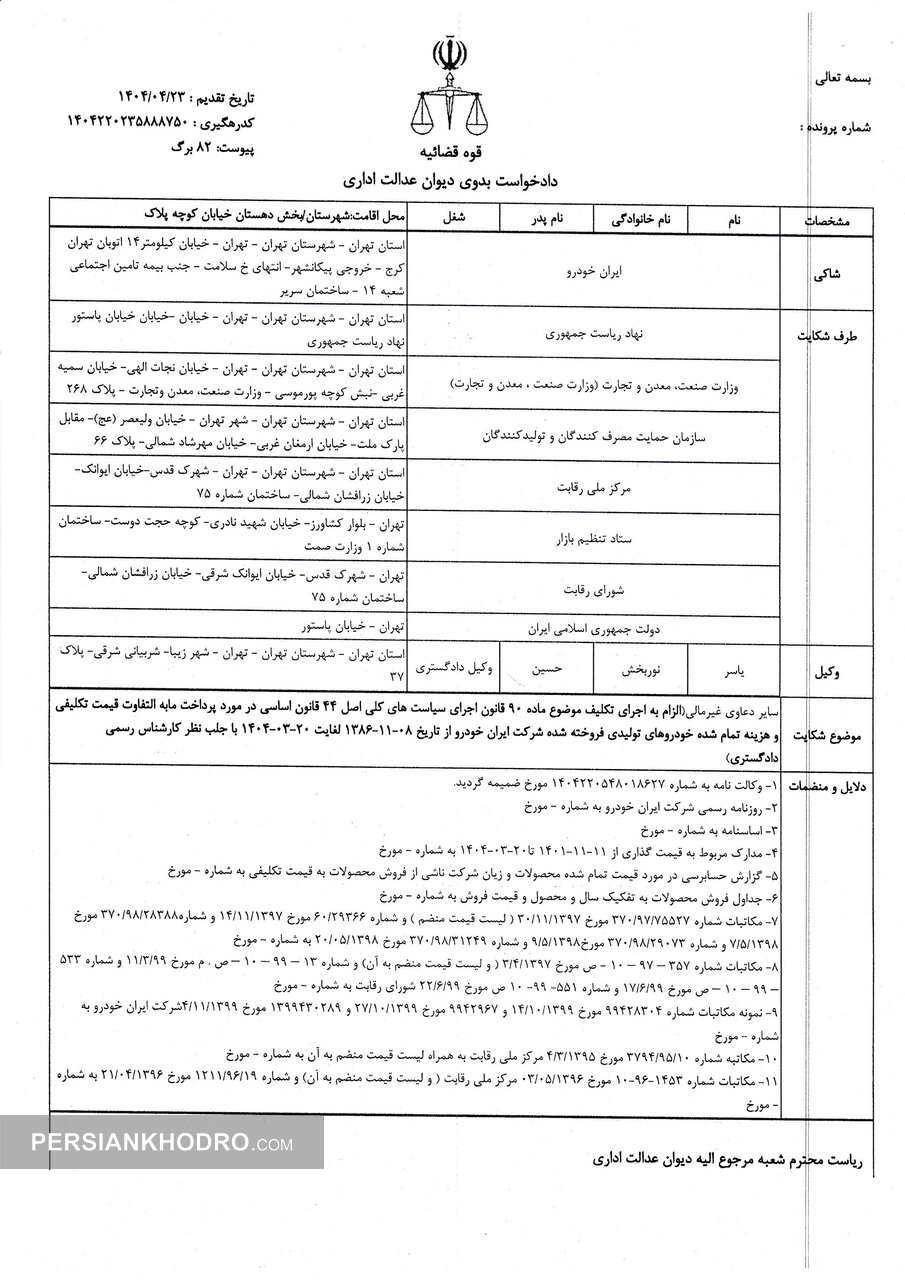 بسمه تعالی
شماره پرونده :
قوه قضائیه
دادخواست بدوی دیوان عدالت اداری
تاریخ تقدیم : ۱۴۰۴/۰۴/۲۳
کدرهگیری : ۱۴۰۴۲۲۰۲۳۵۸۸۸۷۵۰
پیوست: ۸۲ برگ
مشخصات نام نام خانوادگی نام پدر شغل محل اقامت:شهرستان/بخش دهستان خیابان کوچه پلاک
شاکی
ایران خودرو
استان تهران - شهرستان تهران - تهران - خیابان کیلومتر۱۴ اتوبان تهران
کرج - خروجی پیکانشهر- انتهای خ سلامت - جنب بیمه تامین اجتماعی
شعبه ۱۴ - ساختمان سریر
طرف شکایت
نهاد ریاست جمهوری
استان تهران - شهرستان تهران - تهران - خیابان -خیابان خیابان پاستور
نهاد ریاست جمهوری
وزارت صنعت، معدن و تجارت (وزارت صنعت ، معدن و تجارت)
استان تهران - شهرستان تهران - تهران - خیابان نجات الهی- خیابان سمیه
غربی -نبش کوچه پورموسی - وزارت صنعت، معدن وتجارت - پلاک ۲۶۸
سازمان حمایت مصرف کنندگان و تولیدکنندگان
استان تهران - شهرستان تهران - شهر تهران - خیابان ولیعصر (عج)- مقابل
پارک ملت- خیابان ارمغان غربی- خیابان مهرشاد شمالی- پلاک ۶۶
مرکز ملی رقابت
استان تهران - شهرستان تهران - تهران - شهرک قدس-خیابان ایوانک-
خیابان زرافشان شمالی- ساختمان شماره ۷۵
ستاد تنظیم بازار
تهران - بلوار کشاورز- خیابان شهید نادری- کوچه حجت دوست- ساختمان
شماره ۱ وزارت صمت
شورای رقابت
تهران - شهرک قدس- خیابان ایوانک شرقی- خیابان زرافشان شمالی-
ساختمان شماره ۷۵
دولت جمهوری اسلامی ایران
تهران - خیابان پاستور
وکیل یاسر نوربخش حسین وکیل دادگستری
استان تهران - شهرستان تهران - تهران - شهر زیبا- شربیانی شرقی- پلاک
۳۷
موضوع شکایت
سایر دعاوی غیرمالی(الزام به اجرای تکلیف موضوع ماده ۹۰ قانون اجرای سیاست های کلی اصل ۴۴ قانون اساسی در مورد پرداخت مابه التفاوت قیمت تکلیفی
و هزینه تمام شده خودروهای تولیدی فروخته شده شرکت ایران خودرو از تاریخ ۰۸-۱۱-۱۳۸۶ لغایت ۲۰-۰۳-۱۴۰۴ با جلب نظر کارشناس رسمی
دادگستری)
دلایل و منضمات
۱- وکالت نامه به شماره ۱۴۰۴۲۲۰۵۴۸۰۱۸۶۲۷ مورخ ضمیمه گردید.
۲- روزنامه رسمی شرکت ایران خودرو به شماره - مورخ
۳- اساسنامه به شماره - مورخ
۴- مدارک مربوط به قیمت گذاری از ۱۱-۱۱-۱۴۰۱ تا۲۰-۰۳-۱۴۰۴ به شماره - مورخ
۵- گزارش حسابرسی در مورد قیمت تمام شده محصولات و زیان شرکت ناشی از فروش محصولات به قیمت تکلیفی به شماره - مورخ
۶- جداول فروش محصولات به تفکیک سال و محصول و قیمت فروش به شماره - مورخ
۷- مکاتبات شماره ۳۷۰/۹۷/۷۵۵۲۷ مورخ ۳۰/۱۱/۱۳۹۷ ( لیست قیمت منضم ) و شماره ۶۰/۲۹۳۶۶ مورخ ۱۴/۱۱/۱۳۹۷ و شماره۳۷۰/۹۸/۲۸۳۸۸ مورخ
۷/۵/۱۳۹۸ و شماره ۳۷۰/۹۸/۲۹۰۷۳ مورخ۹/۵/۱۳۹۸ و شماره ۳۷۰/۹۸/۳۱۲۴۹ مورخ ۲۰/۰۵/۱۳۹۸ به شماره - مورخ
۸- مکاتبات شماره ۳۵۷ - ۹۷ - ۱۰ - ص مورخ ۳/۴/۱۳۹۷ ( و لیست قیمت منضم به آن) و شماره ۱۳ - ۹۹ - ۱۰ - ص . م مورخ ۱۱/۳/۹۹ و شماره ۵۳۳
- ۹۹ - ۱۰ - ص مورخ ۱۷/۶/۹۹ و شماره ۵۵۱- ۹۹- ۱۰ ص مورخ ۲۲/۶/۹۹ شورای رقابت به شماره - مورخ
۹- نمونه مکاتبات شماره ۹۹۴۲۸۳۰۴ مورخ ۱۴/۱۰/۱۳۹۹ و ۹۹۴۲۹۶۷ مورخ ۲۷/۱۰/۱۳۹۹ و ۱۳۹۹۴۳۰۲۸۹ مورخ ۴/۱۱/۱۳۹۹شرکت ایران خودرو به
شماره - مورخ
۱۰- مکاتبه شماره ۳۷۹۴/۹۵/۱۰ مورخ ۴/۳/۱۳۹۵ مرکز ملی رقابت به همراه لیست قیمت منضم به آن به شماره - مورخ
۱۱- مکاتبات شماره ۱۴۵۳-۹۶-۱۰ مورخ ۰۳/۰۵/۱۳۹۶ مرکز ملی رقابت ( و لیست قیمت منضم به آن) و شماره ۱۲۱۱/۹۶/۱۹ مورخ ۲۱/۰۴/۱۳۹۶ به شماره
- مورخ
ریاست محترم شعبه مرجوع الیه دیوان عدالت اداری
PERSIANKHODRO.COM